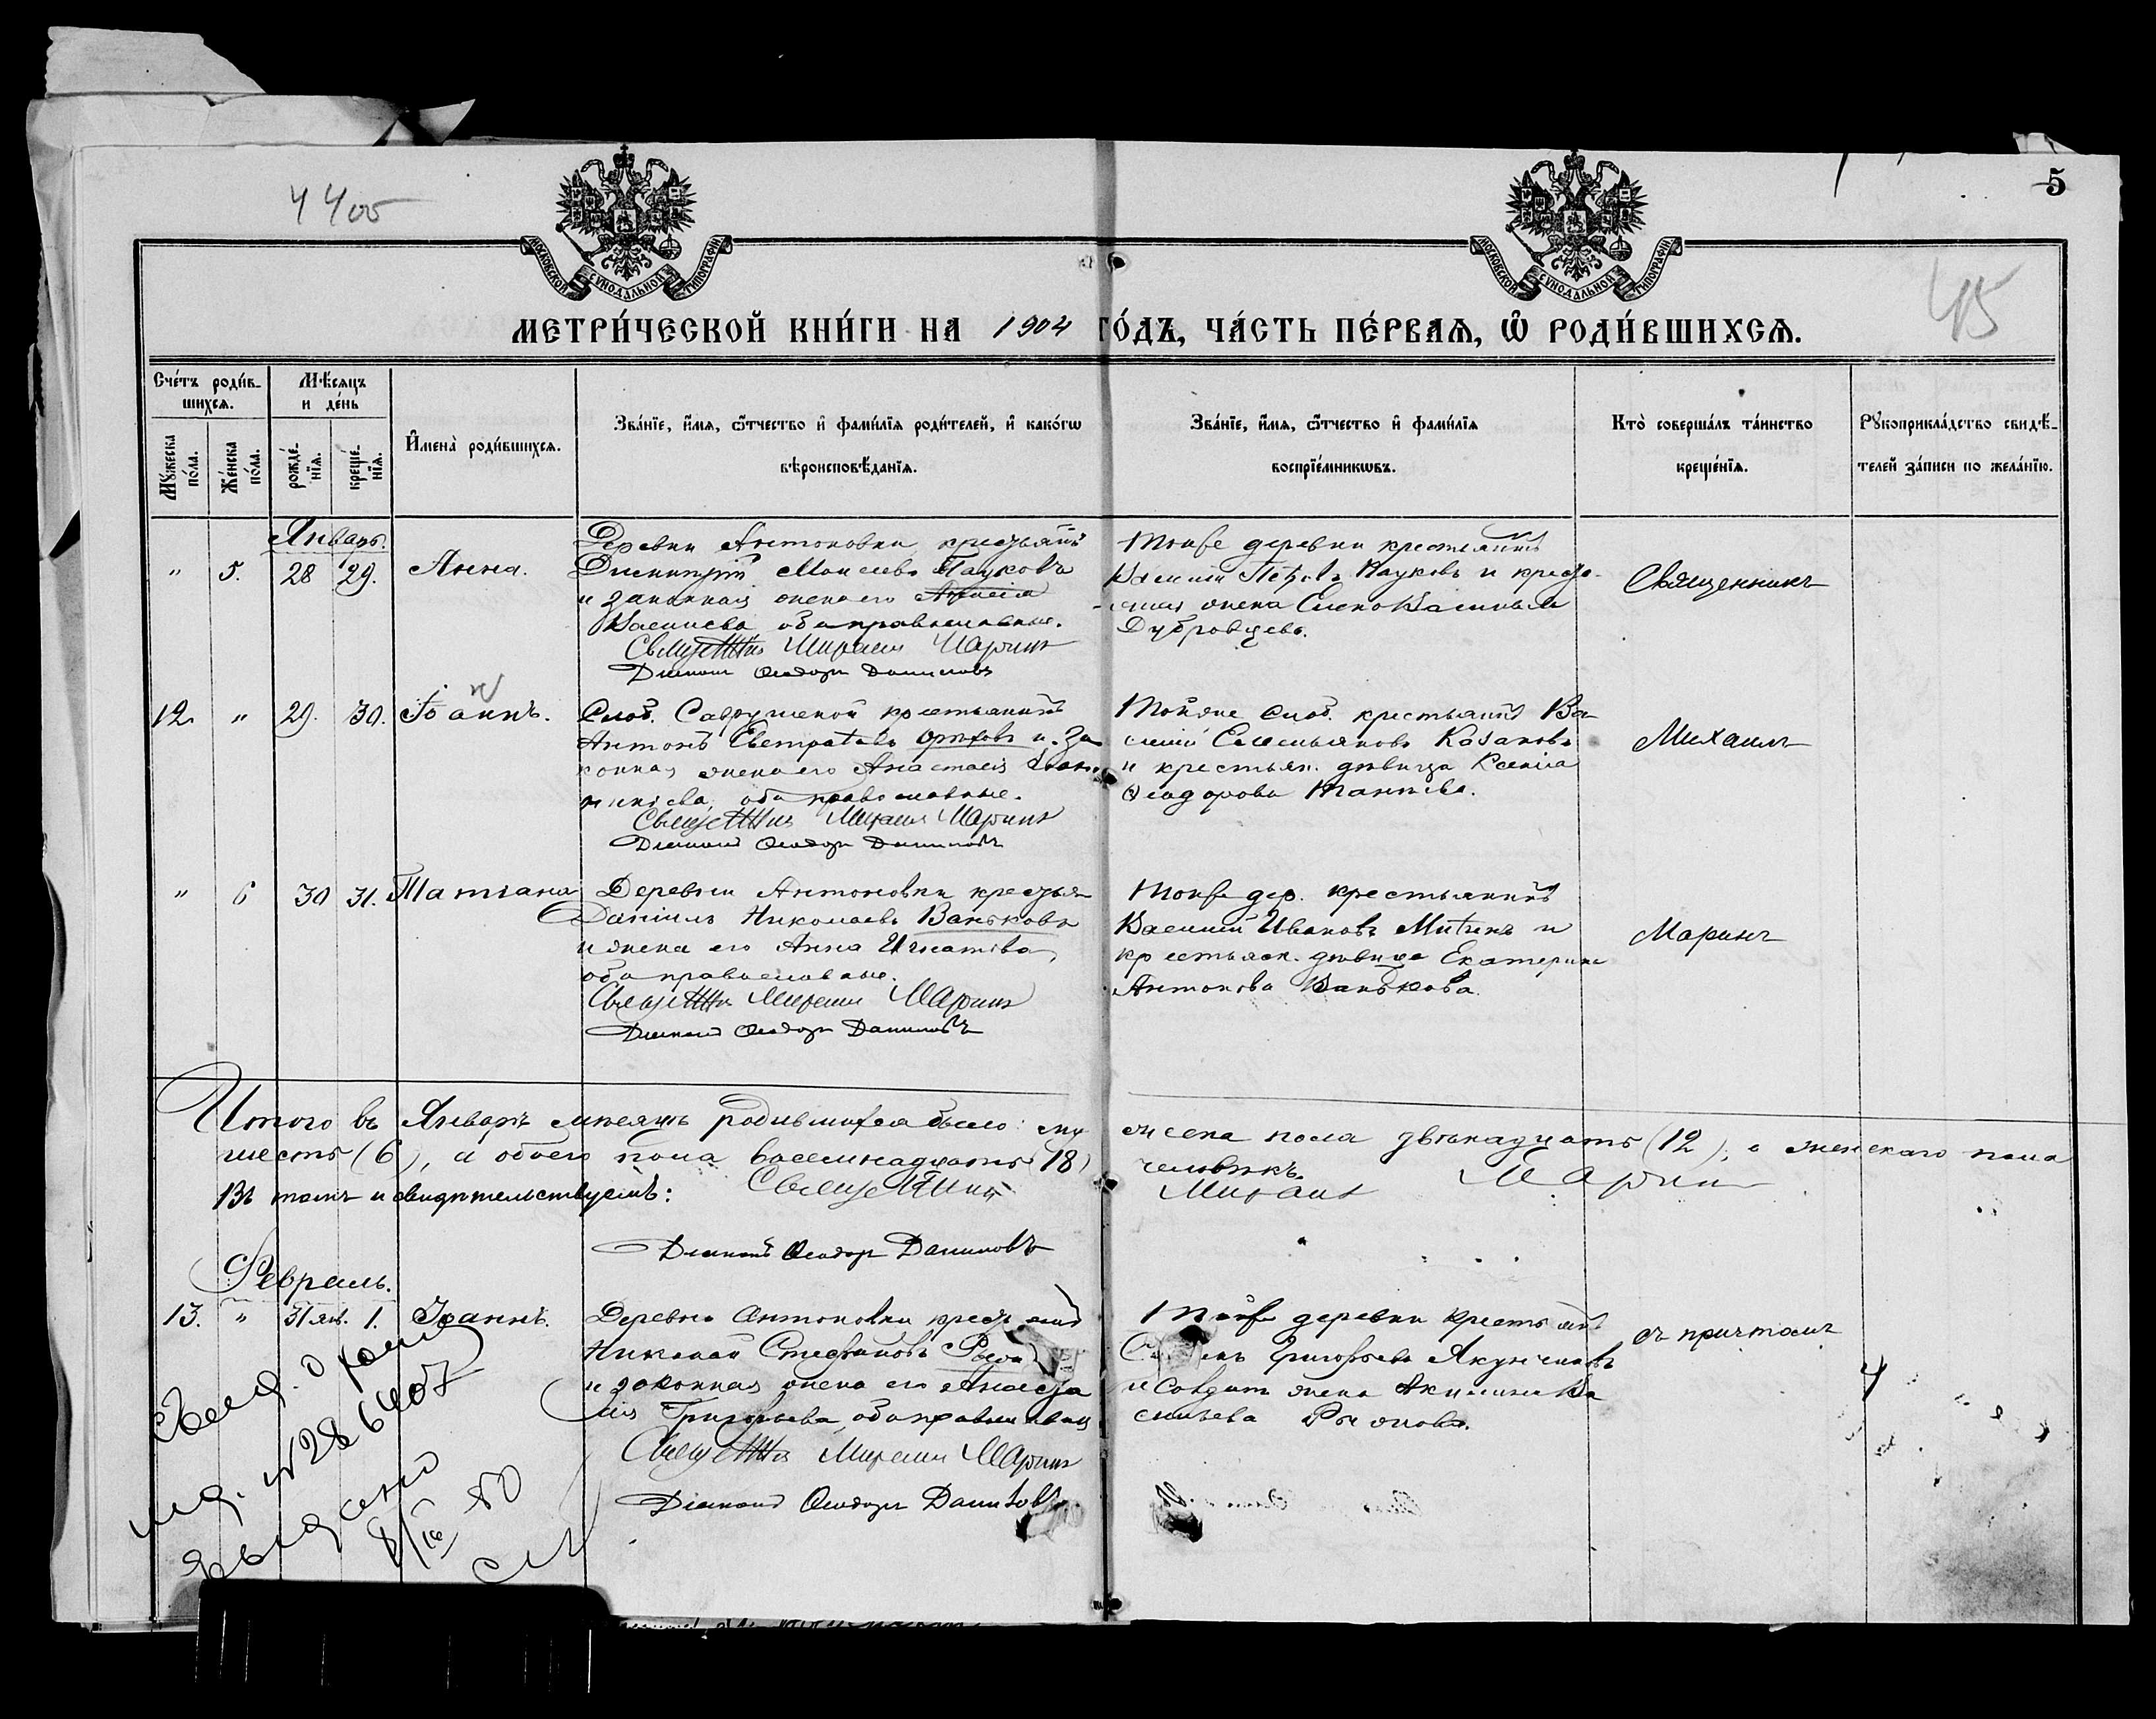 4400
5
45
МОСКОВСКОЙ СУНОДАЛЬНОЙ ТИПОГРАФІИ
МОСКОВСКОЙ СУНОДАЛЬНОЙ ТИПОГРАФІИ
МЕТРИ́ЧЕСКОЙ КНИ́ГИ НА 1904 ГО́ДЪ, ЧА́СТЬ ПЕ́РВАѦ, Ѡ҆ РОДИ́ВШИХСѦ.
Сче́тъ роди́в-
шихсѧ.
Мѣ́сѧцъ
и де́нь
Мꙋ́жеска по́ла.
Же́нска по́ла.
рожде́-нїѧ.
креще́-нїѧ.
И҆мена̀ роди́вшихсѧ.
Зва́нїе, и҆́мѧ, ѻ҆́тчество и҆ фами́лїѧ роди́телей, и҆ како́гѡ
вѣроисповѣ́данїѧ.
Зва́нїе, и҆́мѧ, ѻ҆́тчество и҆ фами́лїѧ
воспрїе́мникѡвъ.
Кто̀ соверша́лъ та́инство
креще́нїѧ.
Рꙋкоприкла́дство свидѣ́-
телей за́писи по жела́нїю.
Январь.
" 5. 28 29. Анна.
Деревни Антоновки крестьянинъ
Димитрій Моисеевъ Пауковъ
и законная жена его
оба православные.
Священникъ Михаилъ Маринъ
Діаконъ Ѳеодоръ Даниловъ
Тойже деревни крестьянинъ
Василій Петровъ Пауковъ и кресть-
жена Елена
Священникъ
12. " 29. 30. Іоаннъ.
Слоб. крестьянинъ
Антонъ Евстратовъ Орѣховъ и за-
конная жена его Анастасія
оба православные.
Священникъ Михаилъ Маринъ
Діаконъ Ѳеодоръ Даниловъ
Тойже слоб. крестьянинъ Ва-
силій Емельяновъ Казаковъ
и крестьян. дѣвица Ксенія
Ѳеодорова
Михаилъ
" 6 30 31. Татіана
Деревни Антоновки крестьян
Даніилъ Николаевъ Ваньковъ
и жена его Анна Игнатова,
оба православные.
Священникъ Михаилъ Маринъ
Діаконъ Ѳеодоръ Даниловъ
Тойже дер. крестьянинъ
Василій Ивановъ Митинъ и
крестьянск. дѣвица Екатерина
Антонова Ванькова.
Маринъ
Итого въ Январѣ мѣсяцѣ родившихся было: му-
жеска пола двѣнадцать (12), а женскаго пола
шесть (6), а обоего пола восемнадцать (18)
человѣкъ.
Въ томъ и свидѣтельствуемъ: Священникъ Михаилъ Маринъ
Діаконъ Ѳеодоръ Даниловъ
Февраль.
13. " 31 янв. 1. Іоаннъ.
Деревни Антоновки крестьянинъ
Николай Стефановъ
и законная жена его Анаста-
сія Григорьева, оба православные
Священникъ Михаилъ Маринъ
Діаконъ Ѳеодоръ Даниловъ
Тойже деревни крестьянинъ
Григорьевъ
и солдат. жена Акилина Ва-
сильева
съ причтомъ
№ 286407
выдано